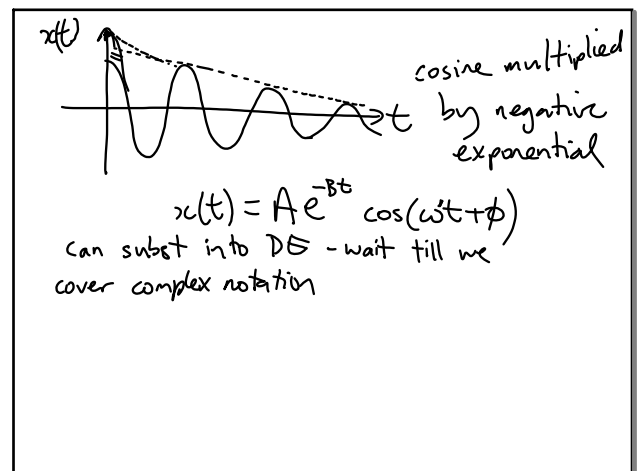 x(t)
t
cosine multiplied
by negative
exponential
x(t) = A e^{-Bt} cos(ω't+ϕ)
can subst into DE - wait till we
cover complex notation